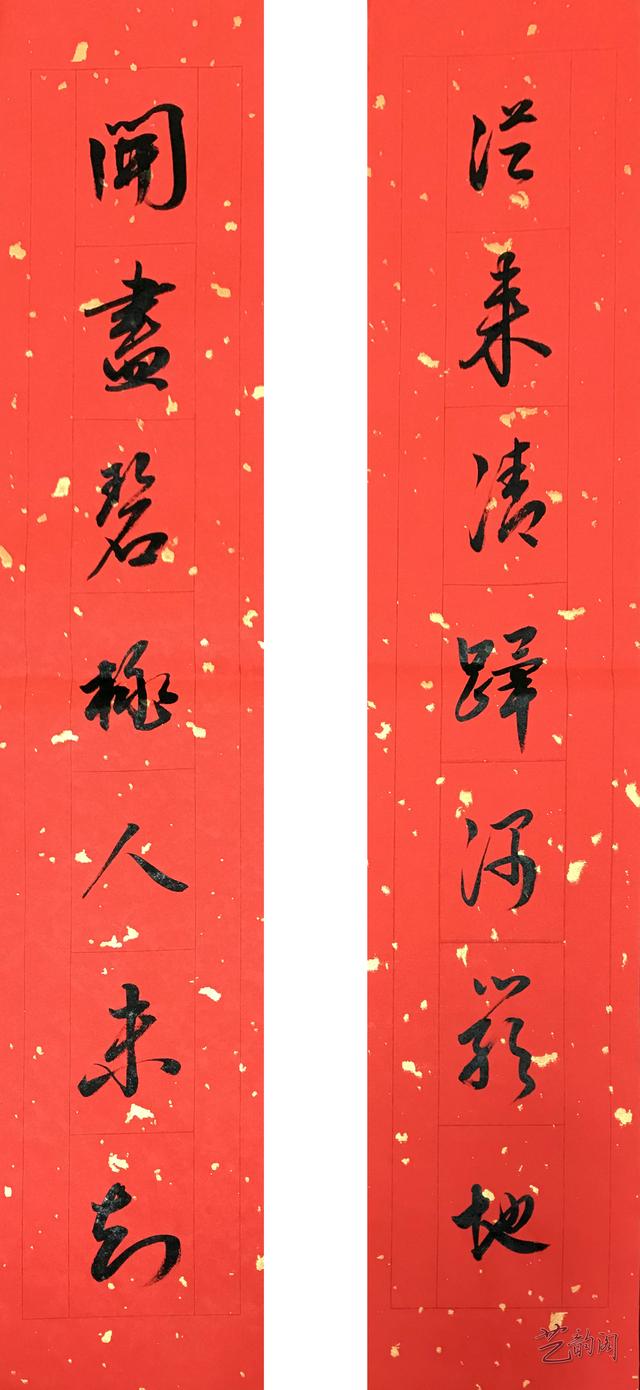 從來清蹕深嚴地
開盡碧桃人未知
艺韵阁